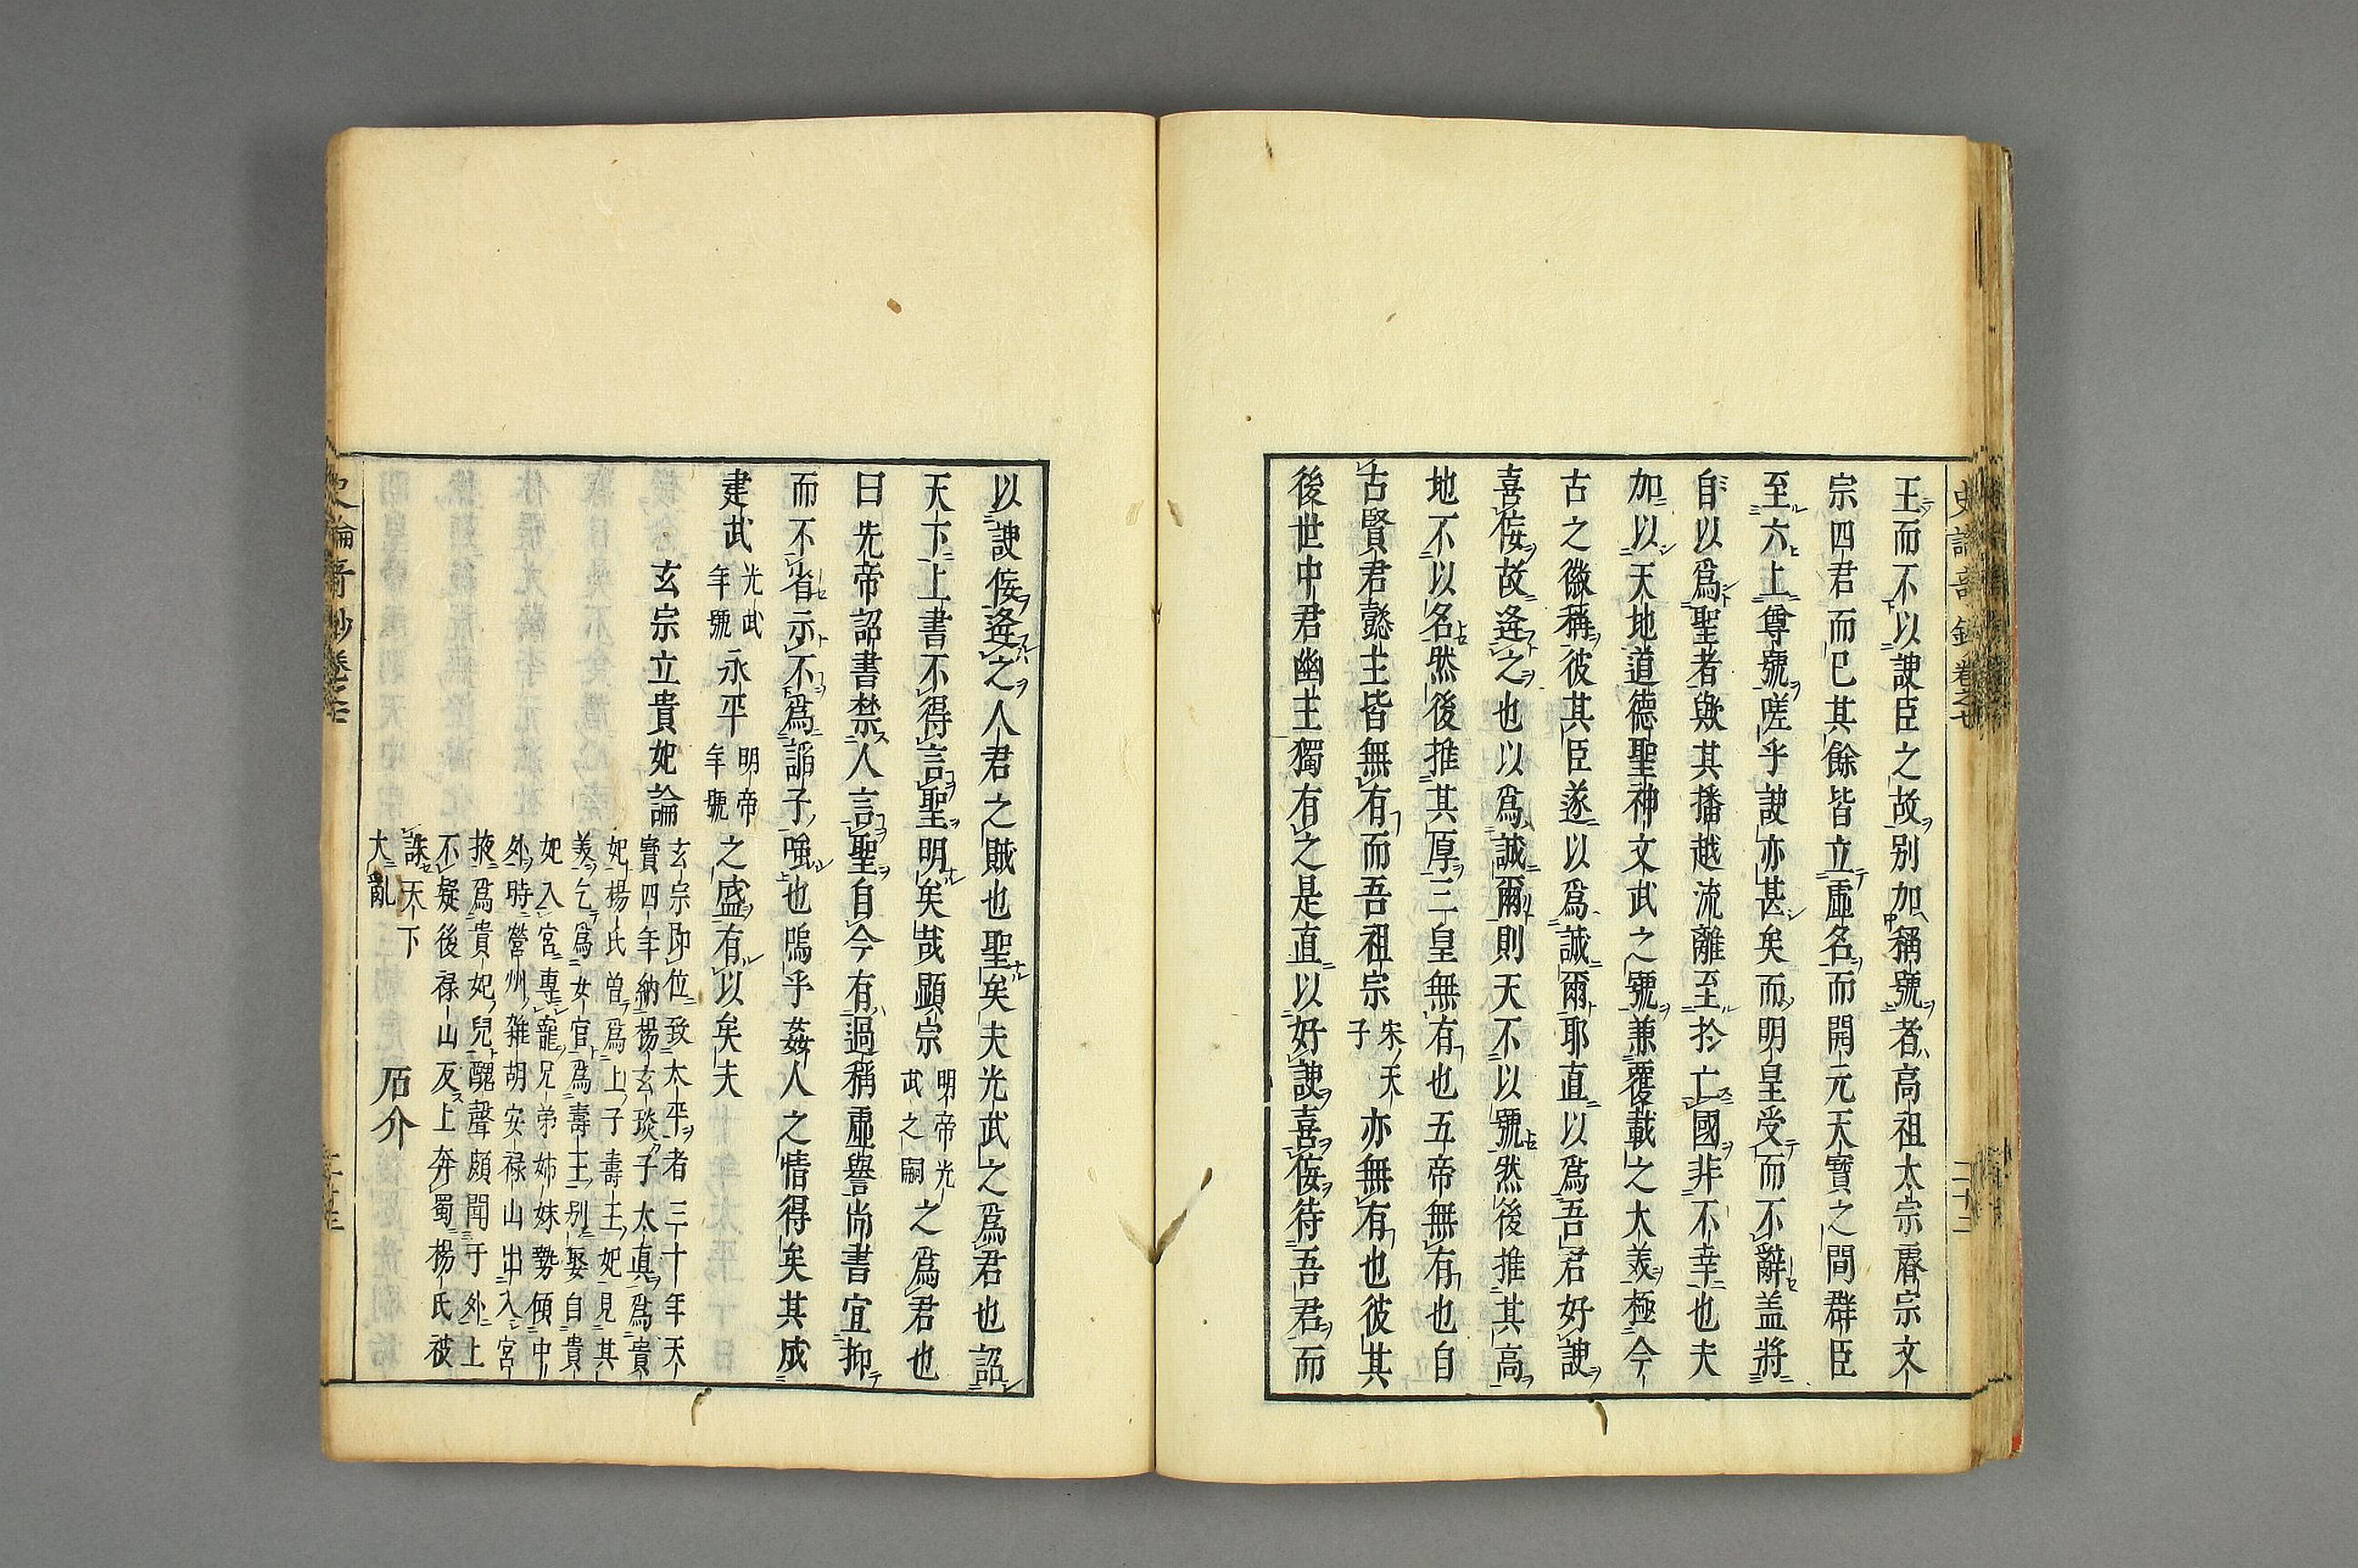 史論奇鈔 卷之廿 二十二
王而不以諛臣之故別加稱號者高祖太宗睿宗文
宗四君而已其餘皆立虛名而開元天寶之間群臣
至六上尊號嗟乎諛亦甚矣而明皇受而不辭盖將
自以爲聖者歟其播越流離至於亡國非不幸也夫
加以天地道德聖神文武之號兼覆載之大美極今
古之徽稱彼其臣遂以爲誠爾耶直以爲吾君好諛
喜佞故逢之也以爲誠爾則天不以號然後推其高
地不以名然後推其厚三皇無有也五帝無有也自
古賢君懿主皆無有而吾祖宗宋天子亦無有也彼其
後世中君幽主獨有之是直以好諛喜佞待吾君而
以諛佞逢之人君之賊也聖矣夫光武之爲君也詔
天下上書不得言聖明矣哉顯宗明帝光武之嗣之爲君也
曰先帝詔書禁人言聖自今有過稱虛譽尚書宜抑
而不省示不爲諂子嗤也嗚乎姦人之情得矣其成
建武光武年號永平明帝年號之盛有以矣夫
玄宗立貴妃論
玄宗即位致太平者三十年天
寶四年納楊玄琰子太真爲貴
妃楊氏曾爲上子壽王妃見其
美乞爲女官爲壽王別娶自貴
妃入宮專寵兄弟姉妹勢傾中
外時營州雑胡安祿山出入宮
掖爲貴妃兒醜聲頗聞于外上
不疑後祿山反上奔蜀楊氏被
誅天下
大亂
石介
史論奇鈔 卷之二